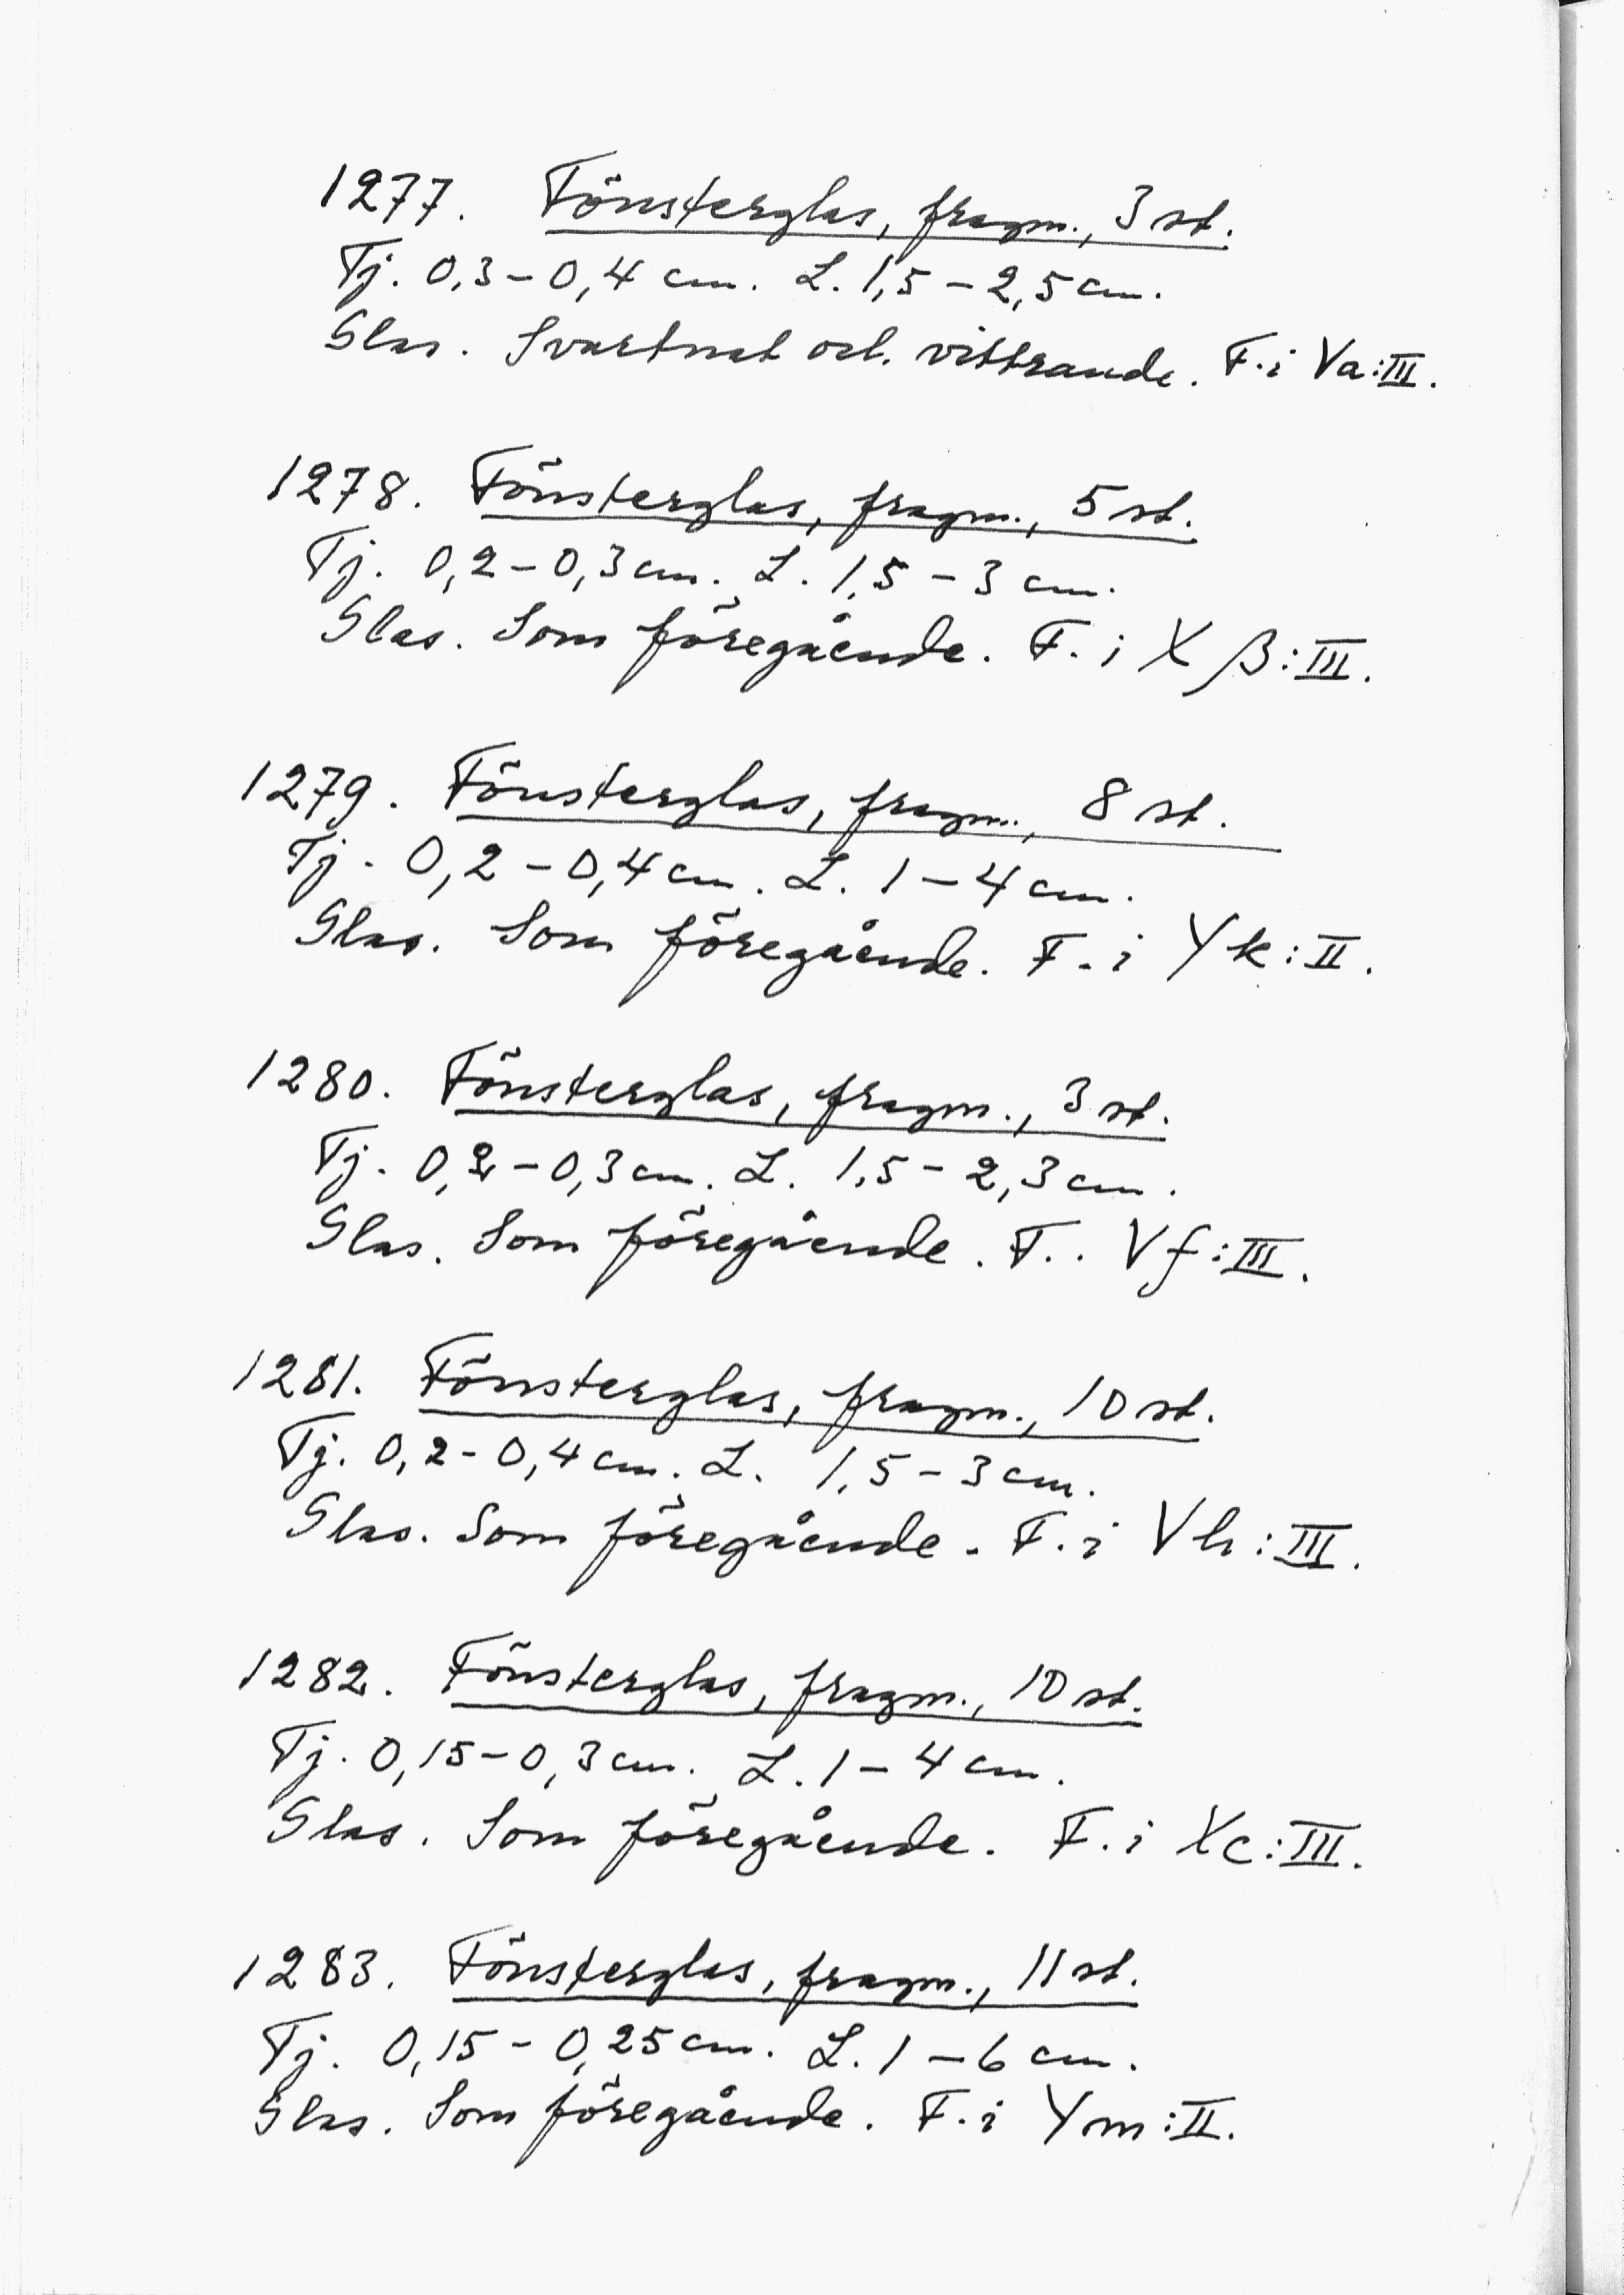 1277. Fönsterglas, fragm., 3 st.
Tj. 0,3-0,4 cm. L. 1,5-2,5 cm.
Glas. Svartnat och vittrande. F. i Va:III.
1278. Fönsterglas, fragm., 5 st.
Tj. 0,2-0,3 cm. L. 1,5-3 cm.
Glas. Som föregående. F. i Xβ:III.
1279. Fönsterglas, fragm., 8 st.
Tj. 0,2-0,4 cm. L. 1-4 cm.
Glas. Som föregående. F. i Yk:II.
1280. Fönsterglas, fragm., 3 st.
Tj. 0,2-0,3 cm. L. 1,5-2,3 cm.
Glas. Som föregående. F. . Vf:III.
1281. Fönsterglas, fragm., 10 st.
Tj. 0,2-0,4 cm. L. 1,5-3 cm.
Glas. Som föregående. F. i Vh:III.
1282. Fönsterglas, fragm., 10 st.
Tj. 0,15-0,3 cm. L. 1-4 cm.
Glas. Som föregående. F. i Xc:III.
1283. Fönsterglas, fragm., 11 st.
Tj. 0,15-0,25 cm. L. 1-6 cm.
Glas. Som föregående. F. i Ym:II.